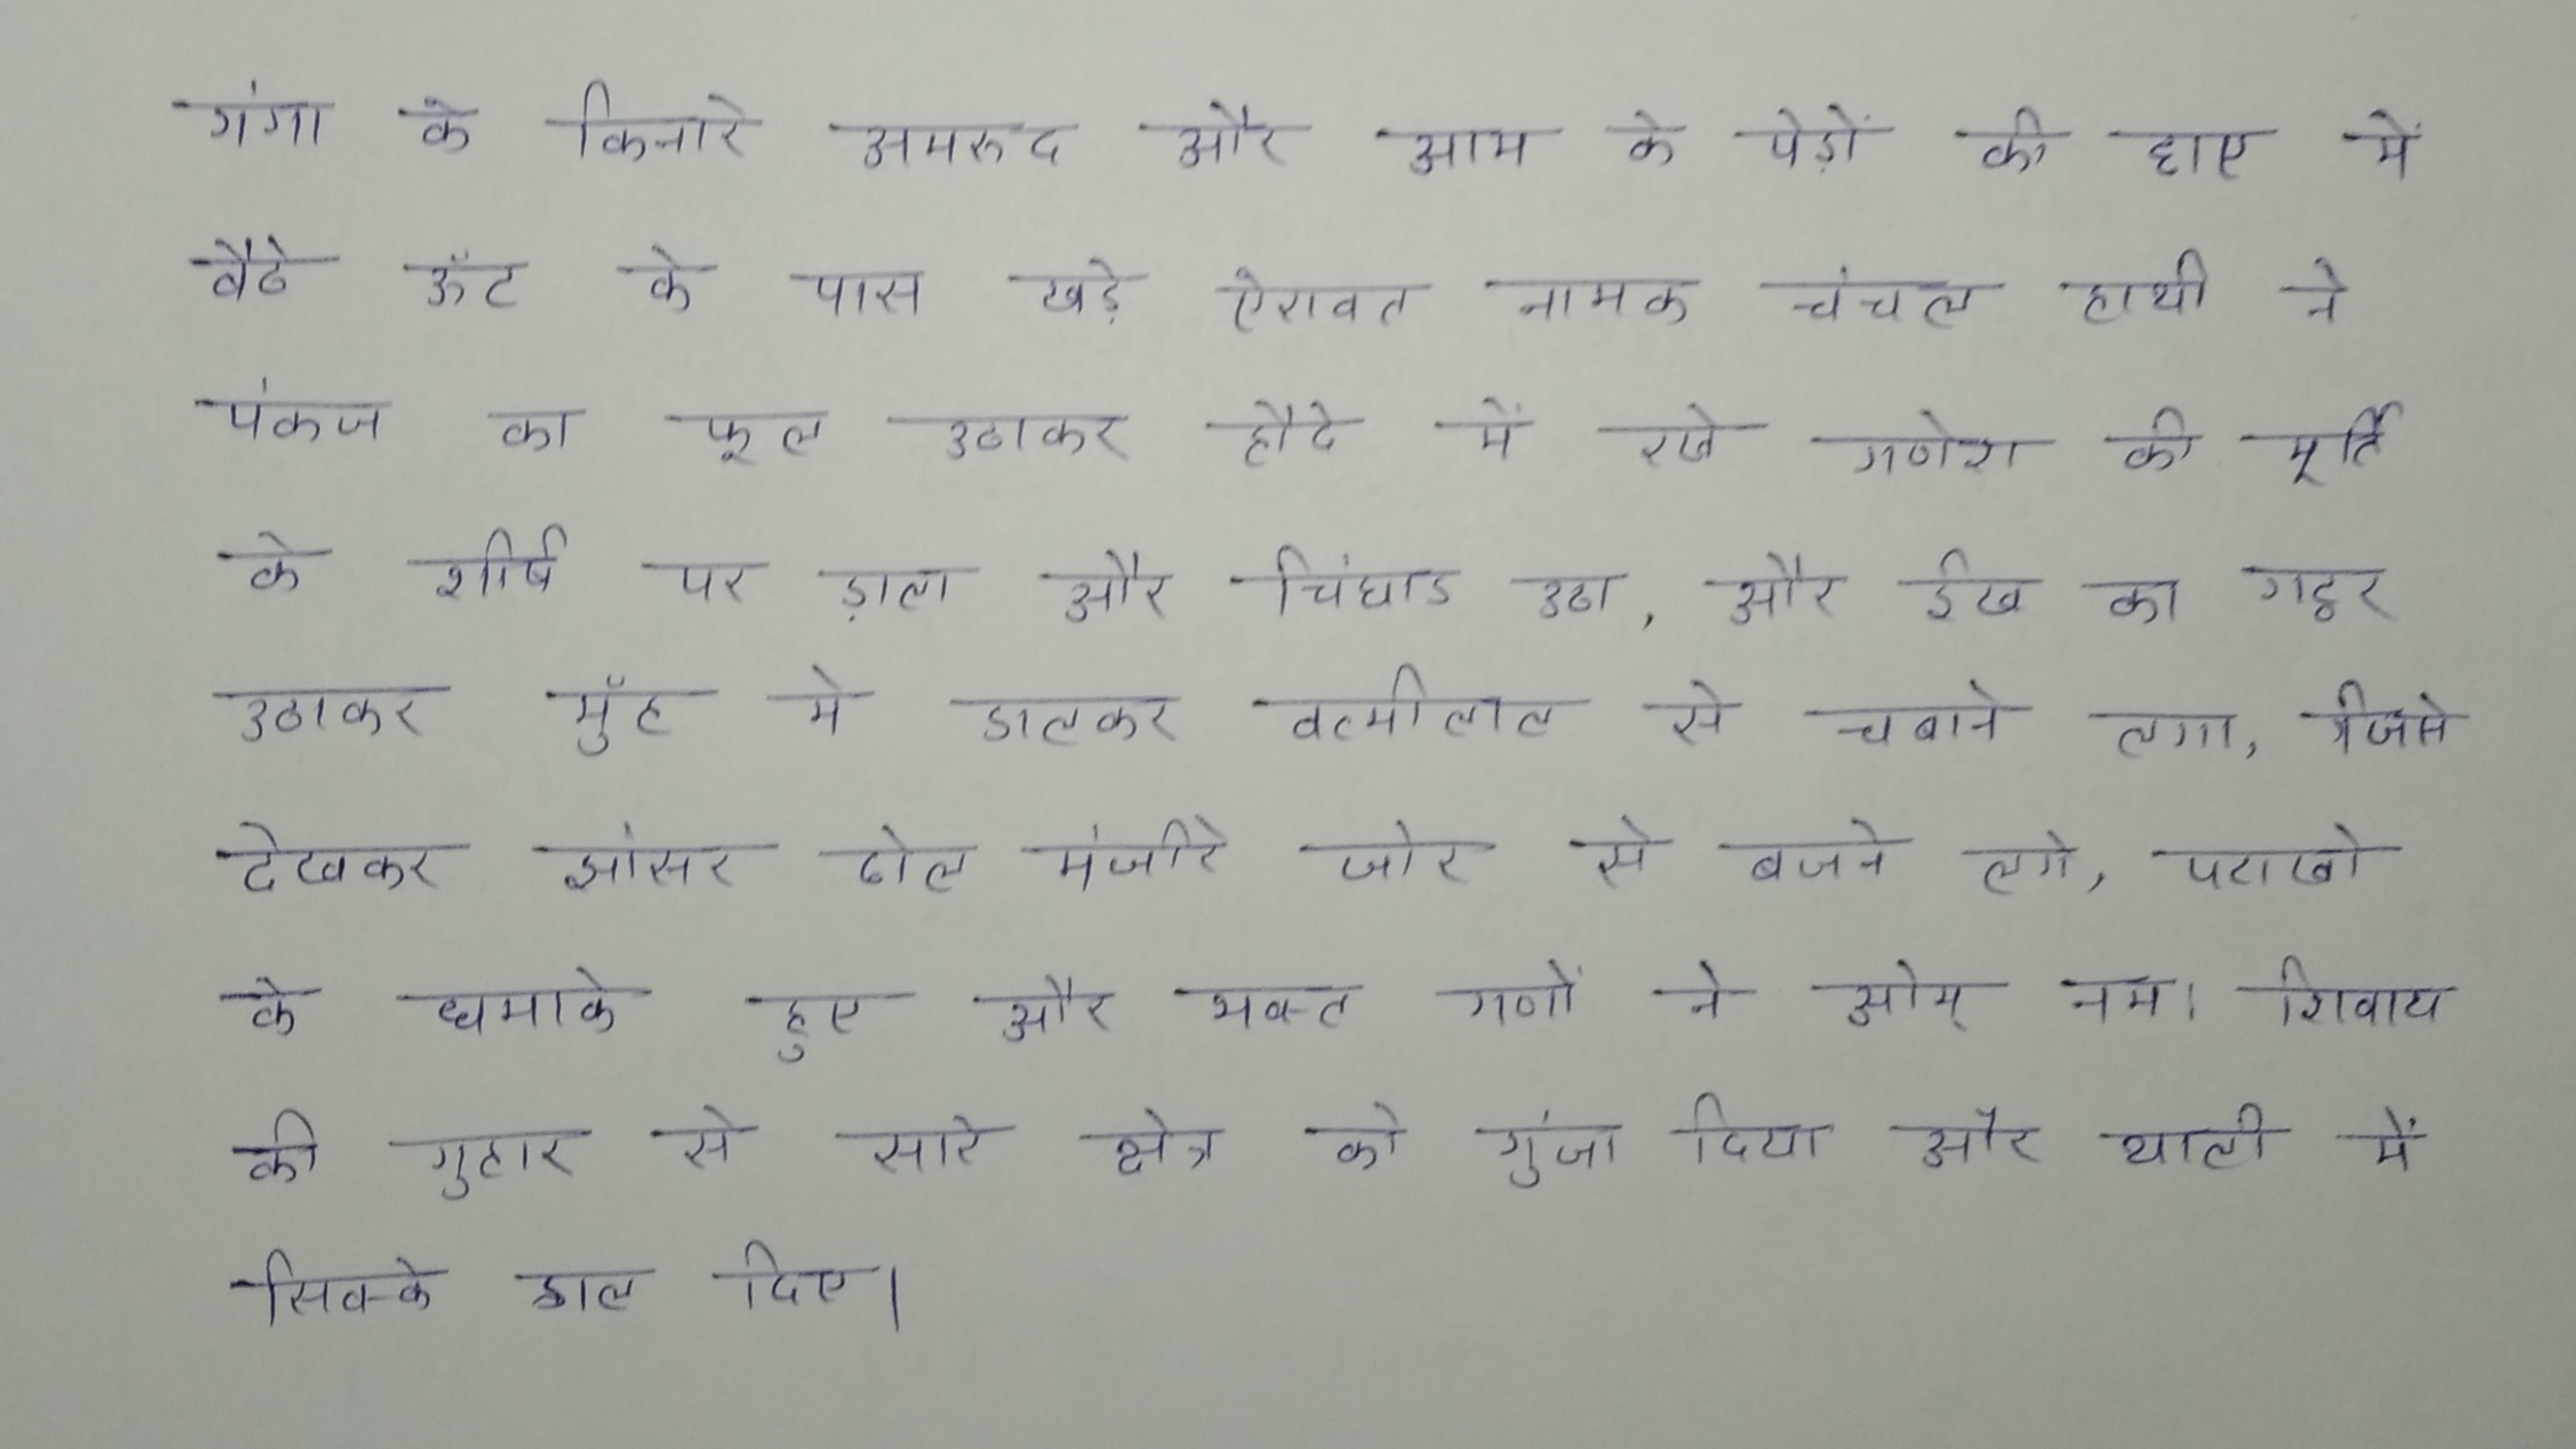 गंगा के किनारे अमरुद और आम के पेड़ों की छाए में
बैठे ऊँट के पास खड़े ऐरावत नामक चंचल हाथी ने
पंकज का फूल उठाकर हौदे में रखे गणेश की मूर्ति
के शीर्ष पर ड़ाला और चिंघाड उठा, और ईख का गट्ठर
उठाकर मुँह मे डालकर से चबाने लगा, जिसे
देखकर झांसर ढोल मंजीरे जोर से बजने लगे, पटाखो
के धमाके हुए और भक्त गणों ने ओम् नम। शिवाय
की गुहार से सारे क्षेत्र को गुंजा दिया और थाली में
सिक्के डाल दिए।